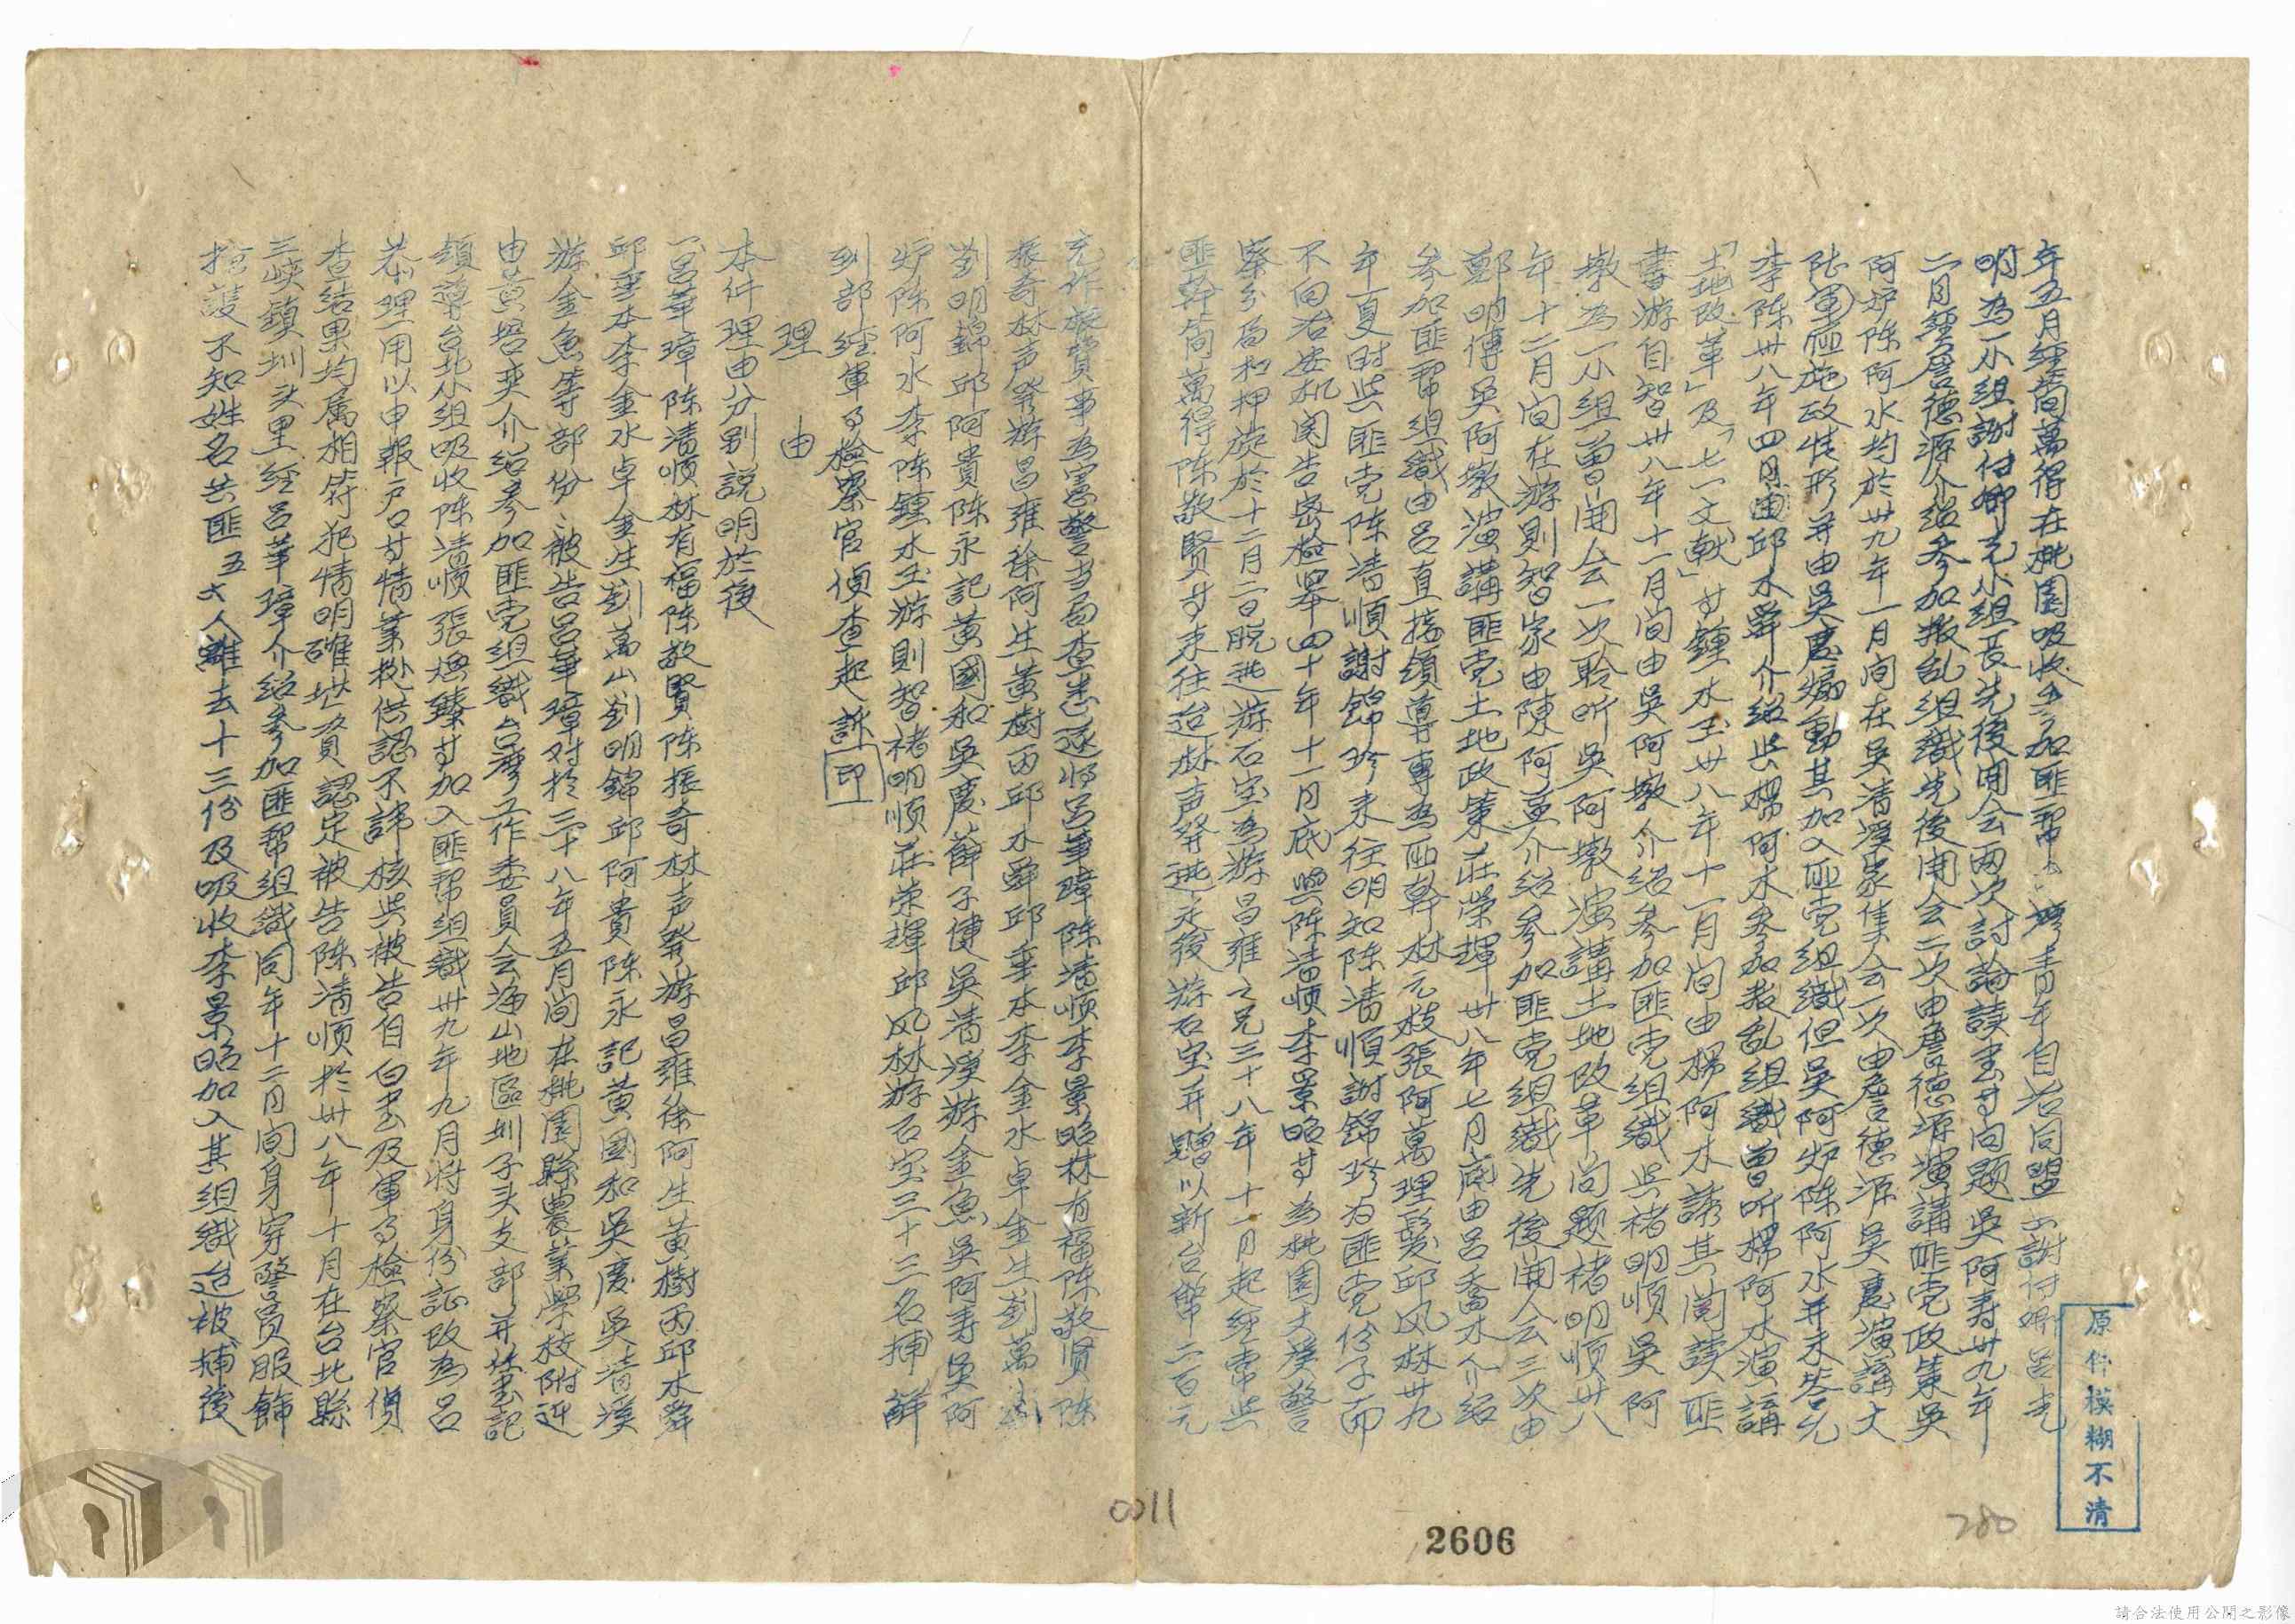 年五月經簡萬得在桃園吸收參加匪幫台灣青年自治同盟謝付鄉呂克
明為一小組謝付鄉充小組長先後開会兩次討論讀書等问題吳阿寿卅九年
二月經詹德源介紹參加叛乱組織先後開会二次由詹德源演講匪党政策吳
阿炉陈阿水均於卅九年一月间在吳清溪家集会一次由詹德源吳慶演講大
陆軍匪施政情形并由吳慶煽動其加入匪党組織但吳阿炉陈阿水并未答允
李陈卅八年四月由邱水舜介紹与楊阿木參加叛乱組織曾听楊阿木演講
「土地改革」及「七一文献」等鍾水玉卅八年十一月间由楊阿木誘其閱讀匪
書游自智卅八年十一月间由吳阿墩介紹參加匪党組織与褚明順吳阿
墩為一小組曾開会一次聆听吳阿墩演講土地改革问題褚明順卅八
年十二月间在游則智家由陳阿英介紹參加匪党組織先後開会三次由
鄭明傳吳阿墩演講匪党土地政策莊荣輝卅八年七月底由呂喬木介紹
參加匪幫組織由呂直接領導專為匪幹林元枝張阿萬理髮邱风林卅九
年夏时与匪党陈清順謝錦珍来往明知陈清順謝錦珍为匪党份子而
不向治安机関告密檢举四十年十一月底與陈清順李景昭等為桃園大溪警
察分局扣押旋於十二月二日脱逃游石宝為游昌雍之兄三十八年十一月起經常与
匪幹简萬得陈敬賢等来往迨林声發逃走後游石宝并贈以新台幣二百元
充作旅費事為憲警当局查悉遂将呂華璋陈清順李景昭林有福陈敬贤陈
振奇林声發游昌雍徐阿生黃樹丙邱水舜邱垂本李金水卓金生劉萬山
劉明錦邱阿貴陈永記黃國和吳慶薛子健吳清溪游金魚吳阿寿吳阿
炉陈阿水李陈鍾水玉游則智褚明順莊荣輝邱风林游石宝三十三名捕解
到部經軍事檢察官偵查起訴印
理　由
本件理由分别説明於後
一、呂華璋陈清順林有福陈敬賢陈振奇林声發游昌雍徐阿生黃樹丙邱水舜
邱垂本李金水卓金生劉萬山劉明錦邱阿貴陈永記黃國和吳慶吳清溪
游金魚等部份、被告呂華璋对於三十八年五月间在桃園縣農業學校附近
由黃培奕介紹參加匪党組織台灣工作委員会海山地區圳子头支部并任書記
領導台北小組吸收陈清順張興臻等加入匪幫組織卅九年九月将身份証改為呂
恭理一用以申報户口等情業據供認不諱核与被告自白書及軍事檢察官偵
查结果均属相符犯情明確堪資認定被告陈清順於卅八年十月在台北縣
三峽鎮圳头里經呂華璋介紹參加匪幫組織同年十二月间身穿警员服飾
掩護不知姓名共匪五六人離去十三份及吸收李景昭加入其組織迨被捕後
原件模糊不清
280
2606
0011
請合法使用公開之影像